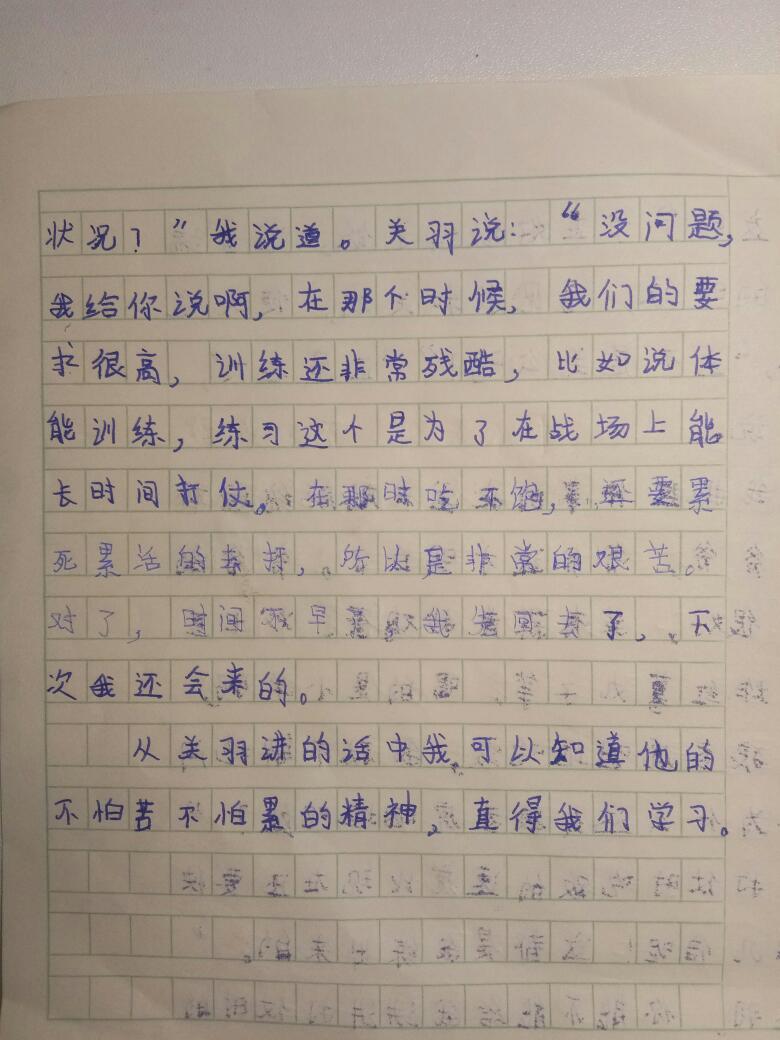 状况？”我说道。关羽说：“没问题，
我给你说啊，在那个时候，我们的要
求很高，训练还非常残酷，比如说体
能训练，练习这个是为了在战场上能
长时间打仗。在那时吃不饱，还要累
死累活的去打，所以是非常的艰苦。
对了，时间不早我先回去了，下
次我还会来的。
从关羽讲的话中我可以知道他的
不怕苦不怕累的精神，直得我们学习。